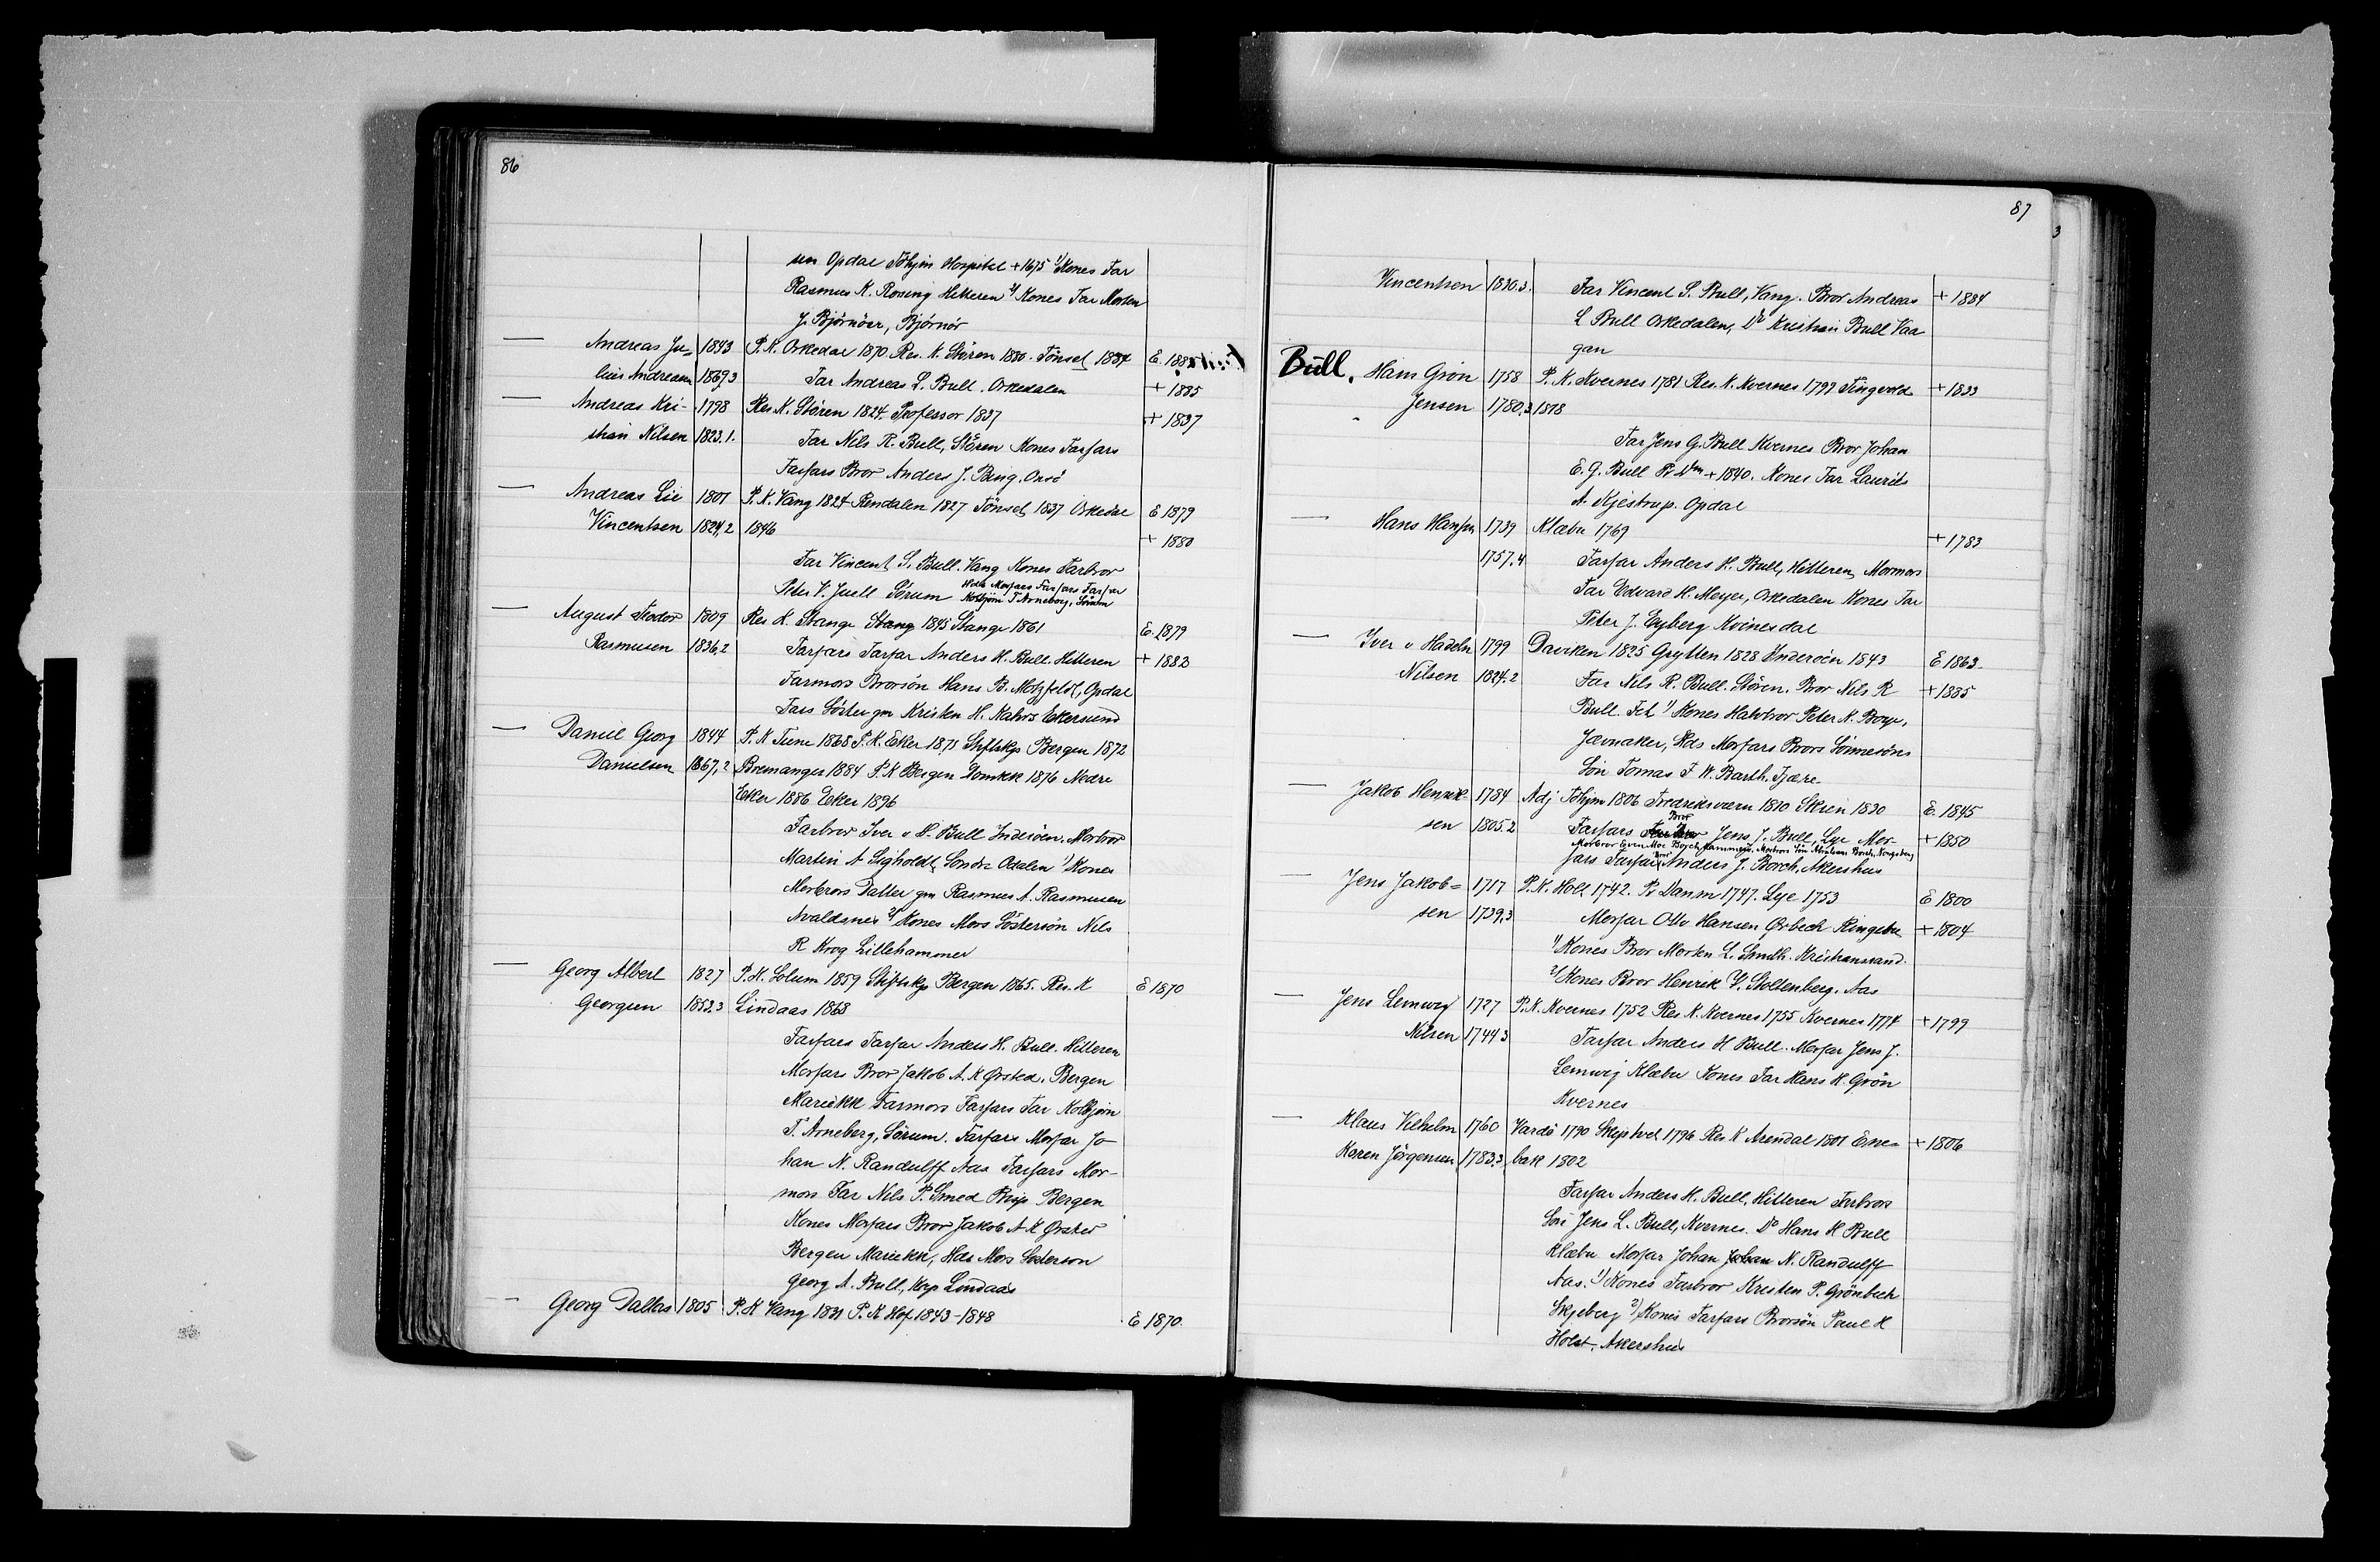 86
sen Opdal Tōhjm Hospital + 1675 1) Kones Far
Rasmus K. Rosing Hitteren 2) Kones Far Morten
J. Björnör, Björnör
— Andreas Ju- 1843 P.K. Orkedal 1870 Res. K. Stören 1880. Tönset 1884 E. 1885
lius Andreasen 1869,3 Far Andreas L. Bull. Orkedalen + 1885
— Andreas Kri- 1798 Res. K. Stören 1824. Professor 1837 + 1837
stian Nilsen 1823.1. Far Nils R. Bull, Stören Kones Farfars
Farfars Bror Anders J. Bing. Onsö
— Andreas Lie 1801 P.K. Vang 1824 Rendalen 1827 Tönset 1837 Orkedal E 1879
Vincentsen 1824,2 1846 + 1880
Far Vincent S. Bull. Vang Kones Farbror
Peter V. Juell Sörum Hds Morfars Farfars Farfar
Kolbjörn T Arneberg, Sörum
— August Teodor 1809 Res K. Stange Stang 1845 Stange 1861 E. 1879
Rasmusen 1836,2 Farfars Farfar Anders H. Bull. Hitteren + 1883
Farmors Brorsön Hans B. Motzfeldt, Opdal
Fars Söster gm Kristen H. Nahrs Ekersund
— Daniel Georg 1844 P.K Tune 1868 P.K. Eker 1871 Stiftskp Bergen 1872
Danielsen 1867,2 Bremanger 1884 P.K Bergen Domkk 1876 Nedre
Eker 1886 Eker 1896
Farbror Iver v H. Bull Inderöen. Morbror
Martin A Sigholdt, Söndre Odalen 1) Kones
Morbrors Datter gm Rasmus A. Rasmusen
Avaldsnes 2) Kones Mors Söstersön Nils
R Krog Lillehammer
— Georg Albert 1827 P.K. Solum 1859 Stiftskp Bergen 1865. Res. K E 1870
Georgsen 1852.3 Lindaas 1868
Farfars Farfar Anders H. Bull. Hitteren
Morfars Bror Jakob A. K Ørsted. Bergen
Mariekk Farmors Farfars Far Kolbjörn
T. Arneberg, Sörum. Farfars Morfar Jo-
han N. Randulff Aas Farfars Mor-
mors Far Nils P. Smed Bisp Bergen
Kones Morfars Bror Jakob A K Ørsted
Bergen Mariekk, Hds Mors Söstersön
Georg A. Bull, Kap Lindaas
— Georg Dallas 1805 P.K Vang 1831 P.K Hof 1843-1848 E 1870.
87
Vincentsen 1830.3. Far Vincent S. Bull, Vang. Bror Andreas + 1884
L Bull Orkedalen, Do Kristian Bull Vaa
gan
Bull. Hans Grön 1758 P.K. Kvernes 1781 Res. K. Kvernes 1799 Tingvold + 1833
Jensen 1780.3 1818
Far Jens G. Bull Kvernes Bror Johan
E.G. Bull Pr Dm + 1840. Kones Far Laurits
A. Kjestrup. Opdal
— Hans Hansen 1739 Klæbu 1769 + 1783
1757.4 Farfar Anders H. Bull, Hitteren, Mormors
Far Edvard H. Meyer, Orkedalen Kones Far
Peter J. Eyberg Kvinesdal
— Iver v Hadeln 1799 Daviken 1825 Grytten 1828 Inderöen 1843 E 1863.
Nilsen 1824.2 Far Nils R. Bull. Stören. Bror Nils R + 1885
Bull. Fet 1) Kones Halvbror Peter N. Boye,
Jævnaker, Hds Morfars Brors Sönnesöns
Sön Tomas F W. Barth. Fjære.
— Jakob Henrik- 1784 Adj Tōhjm 1806 Fredriksværn 1810 Skien 1830 E. 1845
sen 1805.2 Farfars Bror Jens J. Bull, Lye Mor- + 1850
fars Farfars Bror Anders J. Borch, Akershus
— Jens Jakob- 1717 P.K. Holt 1742. Pr Danm 1747. Lye 1753 E 1800
sen 1739,3 Morfar Otto Hansen Ørbech Ringebu + 1804
1) Kones Bror Morten L. Smith. Kristianssand.
2) Kones Bror Henrik V. Stoltenberg. Aas
— Jens Lemwig 1727 P.K. Kvernes 1752 Res K. Kvernes 1755 Kvernes 1774 + 1799
Nilsen 1744 3 Farfar Anders H Bull. Morfar Jens J.
Lemvig Klæbu Kones Far Hans H. Grön
Kvernes
— Klaus Vilhelm 1760 Vardö 1790 Skiptvet 1796 Res K Arendal 1801 Ene- + 1806
Koren Jörgensen 1783.3 bak 1802
Farfar Anders H. Bull, Hitteren Farbrors
Sön Jens L. Bull, Kvernes. Do Hans H Bull
Klæbu Morfar Johan Johan N. Randulff
Aas. 1) Kones Farbror Kristen P. Grönbech
Skjeberg 2) Kones Farfars Brorsön Paul H
Holst, Akershus